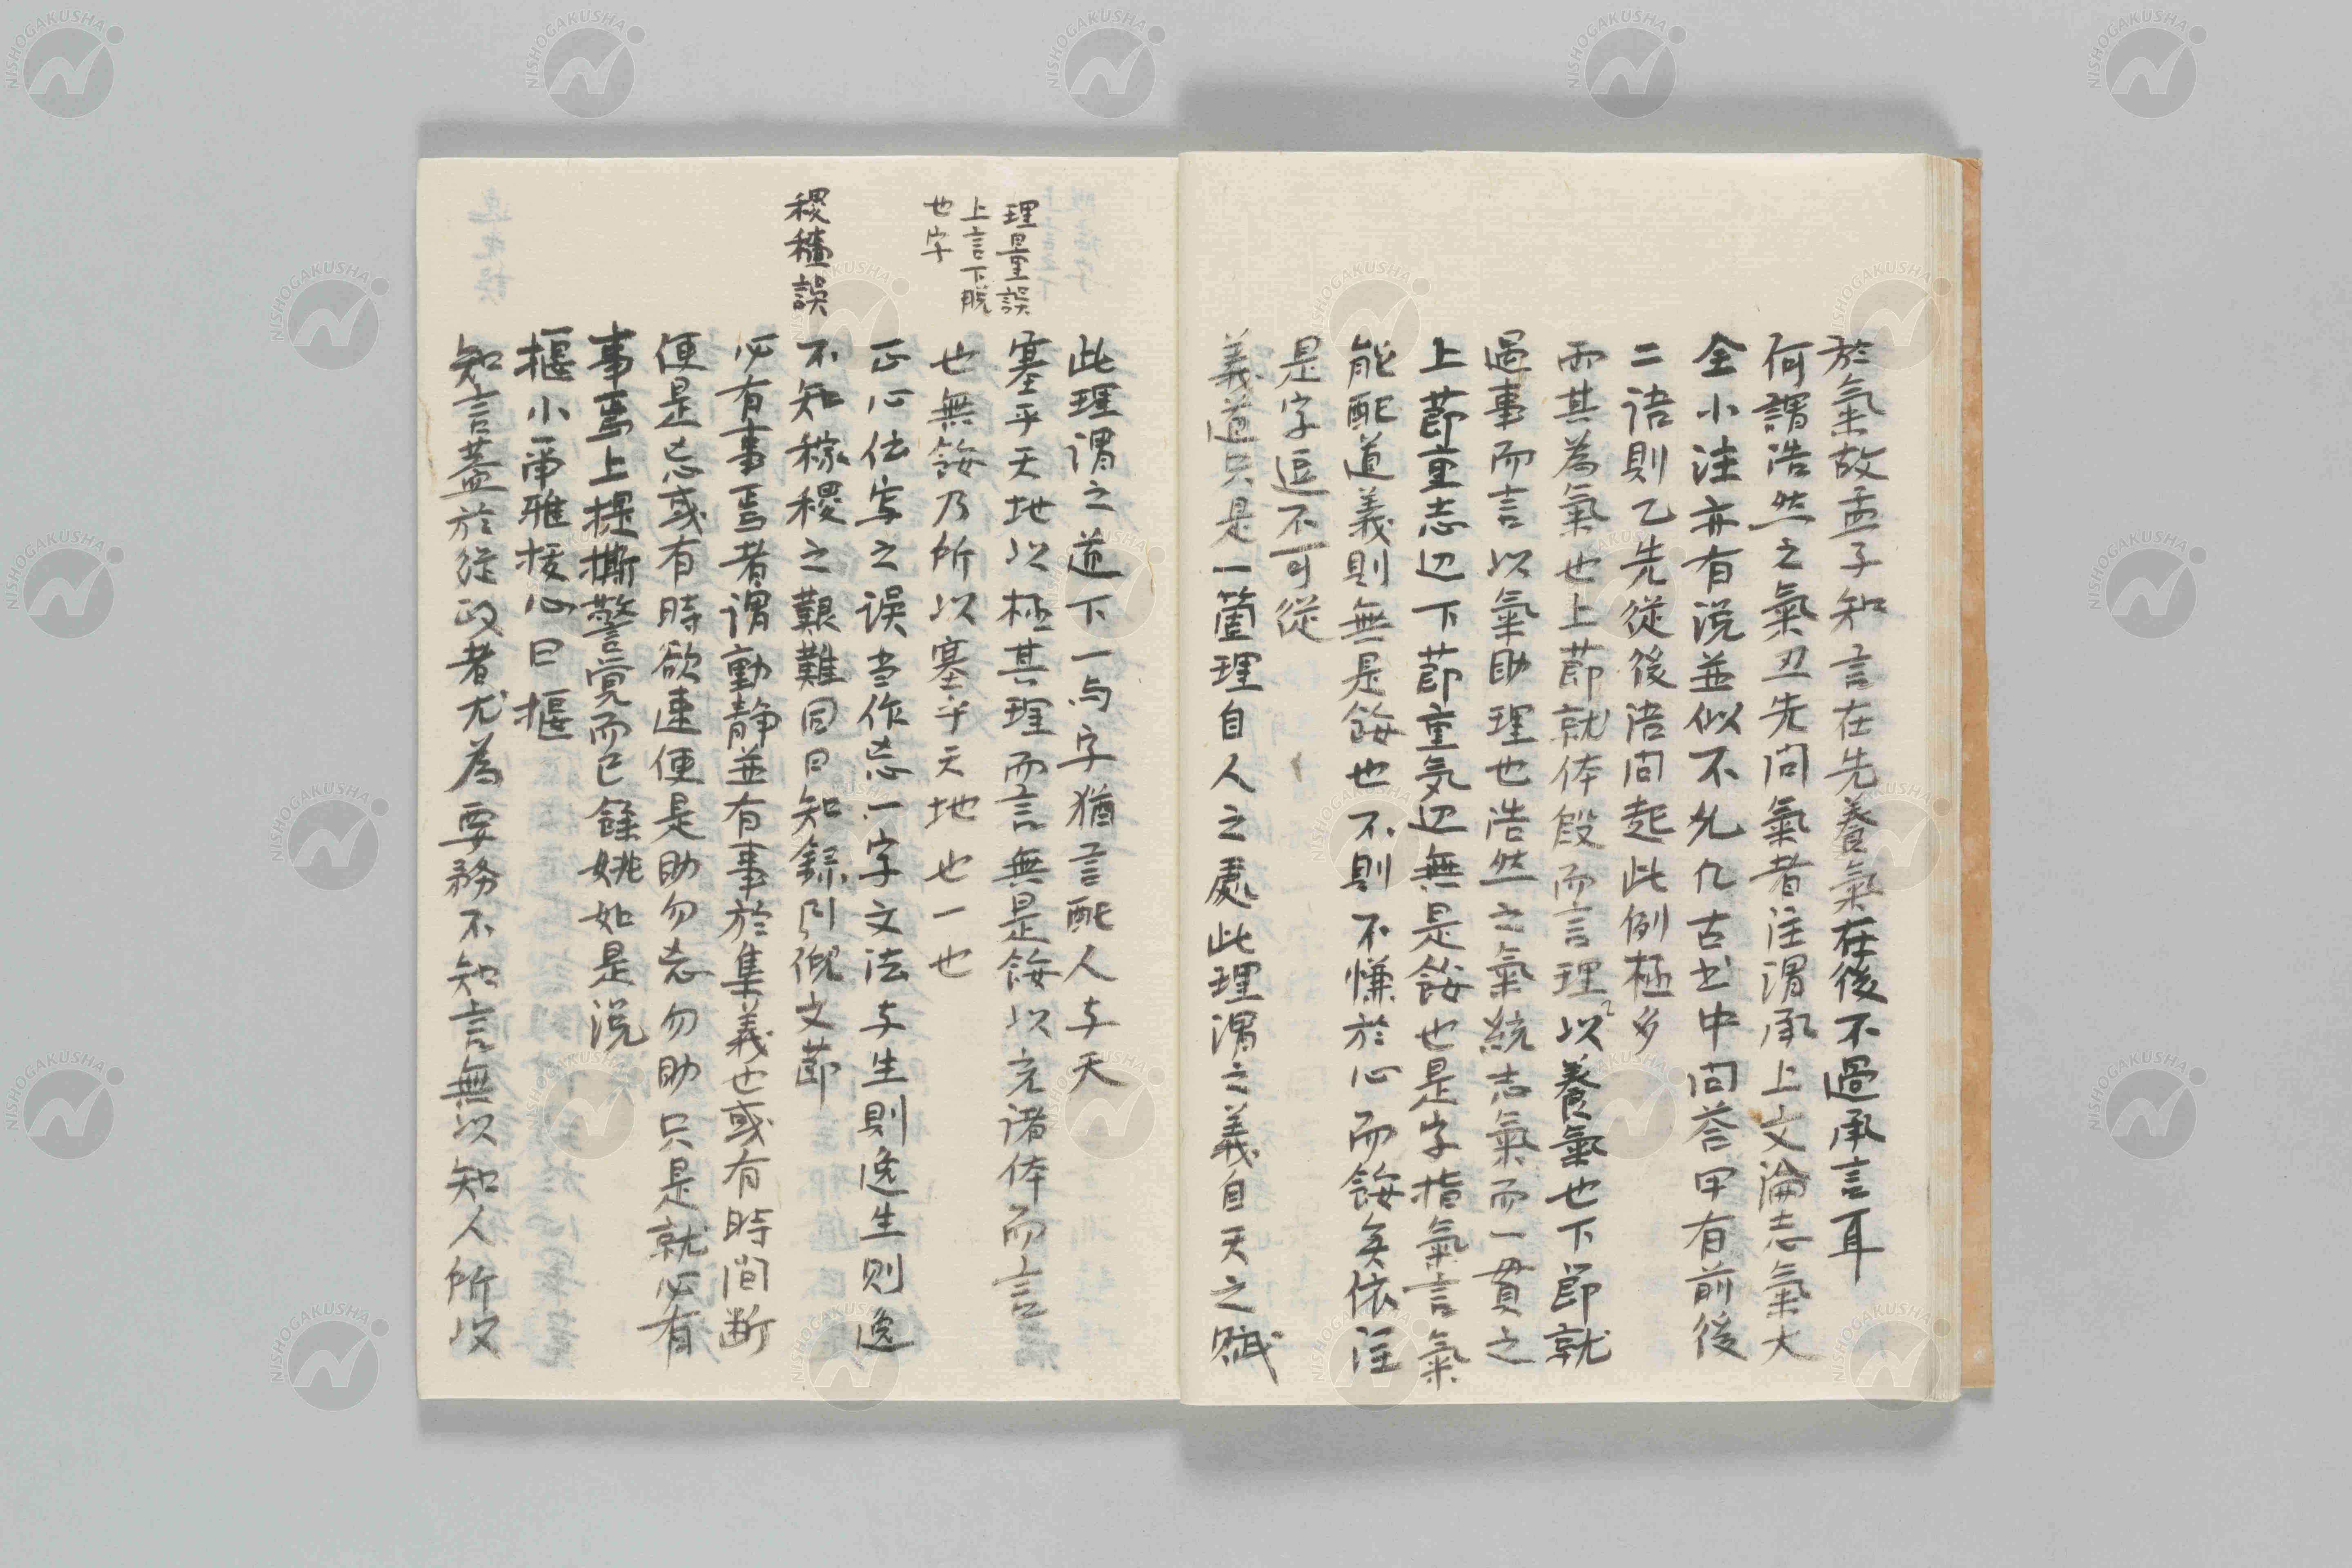 於氣故孟子知言在先養氣在後不過承言耳
何謂浩然之氣丑先問氣者注謂承上文論志氣大
全小注亦有説並似不允凡古书中問荅甲有前後
二语則乙先從後语問起此例極多
而其為氣也上節就体段而言理以養氣也下節就
過事而言以氣助理也浩然之氣統志氣而一貫之
上節重志辺下節重気辺無是餒也是字指氣言氣
能配道義則無是餒也不則不慊於心而餒矣依注
是字逗不可從
義道只是一箇理自人之處此理謂之義自天之賦
此理谓之道下一与字猶言配人与天
塞乎天地以極其理而言無是餒以充诸体而言
也無餒乃所以塞乎天地也一也
正心伝写之误当作忘一字文法与生則逸生则逸
不知稼稷之艱難同日知録引倪文節
必有事焉者谓動静並有事於集義也或有時间断
便是忘或有時欲速便是助勿忘勿助只是就必有
事焉上提撕警覚而已餘姚如是说
揠小爾雅拔心曰揠
知言蓋於従政者尤為要務不知言無以知人所以
理量誤
上言下脱
也字
稷穡誤
NISHOGAKUSHA